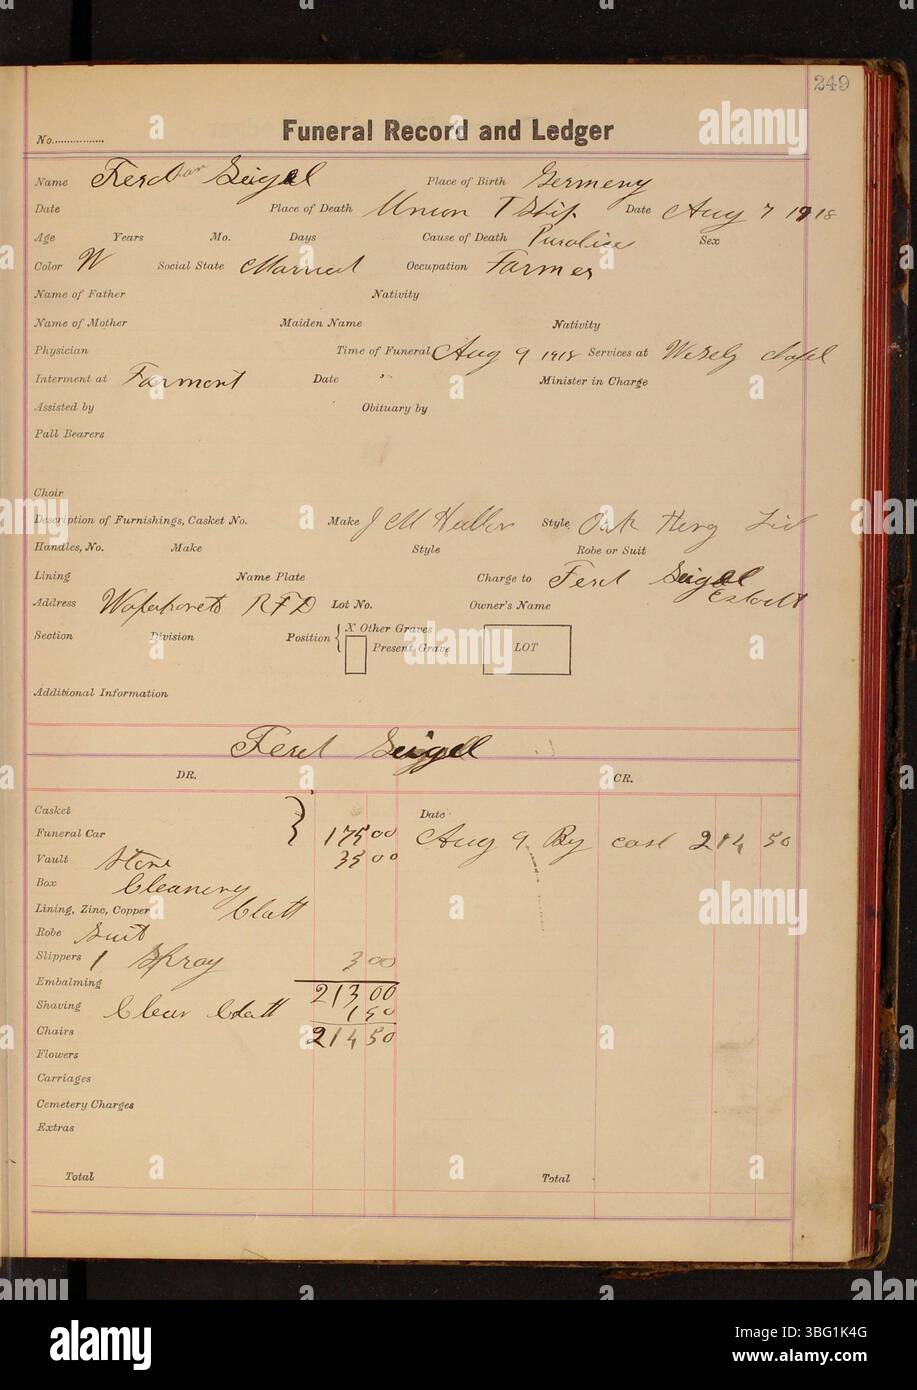 249
No.
Funeral Record and Ledger
Name Ferd Seigel Place of Birth Germeny
Date Place of Death Union T Ship Date Aug 7 1918
Age Years Mo. Days Cause of Death Sex
Color W Social State Married Occupation Farmer
Name of Father Nativity
Name of Mother Maiden Name Nativity
Physician Time of Funeral Aug 9 1918 Services at Wesely Chapel
Interment at Farmont Date " Minister in Charge
Assisted by Obituary by
Pall Bearers
Choir
Description of Furnishings, Casket No. Make J M Style Oak Lid
Handles, No. Make Style Robe or Suit
Lining Name Plate Charge to Ferd Seigel
Address R F D Lot No. Owner's Name
Section Division Position { X Other Graves
Present Grave
LOT
Additional Information
Ferd Seigel
DR. CR.
Casket Date
Funeral Car } 175 00 Aug 9 By cash 214 50
Vault Stone 35 00
Box Cleanery
Lining, Zinc, Copper
Robe Suit
Slippers 1 Spray 3 00
Embalming 213 00
Shaving 1 50
Chairs 214 50
Flowers
Carriages
Cemetery Charges
Extras
Total Total
alamy
Image ID: 3BG1K4G
www.alamy.com